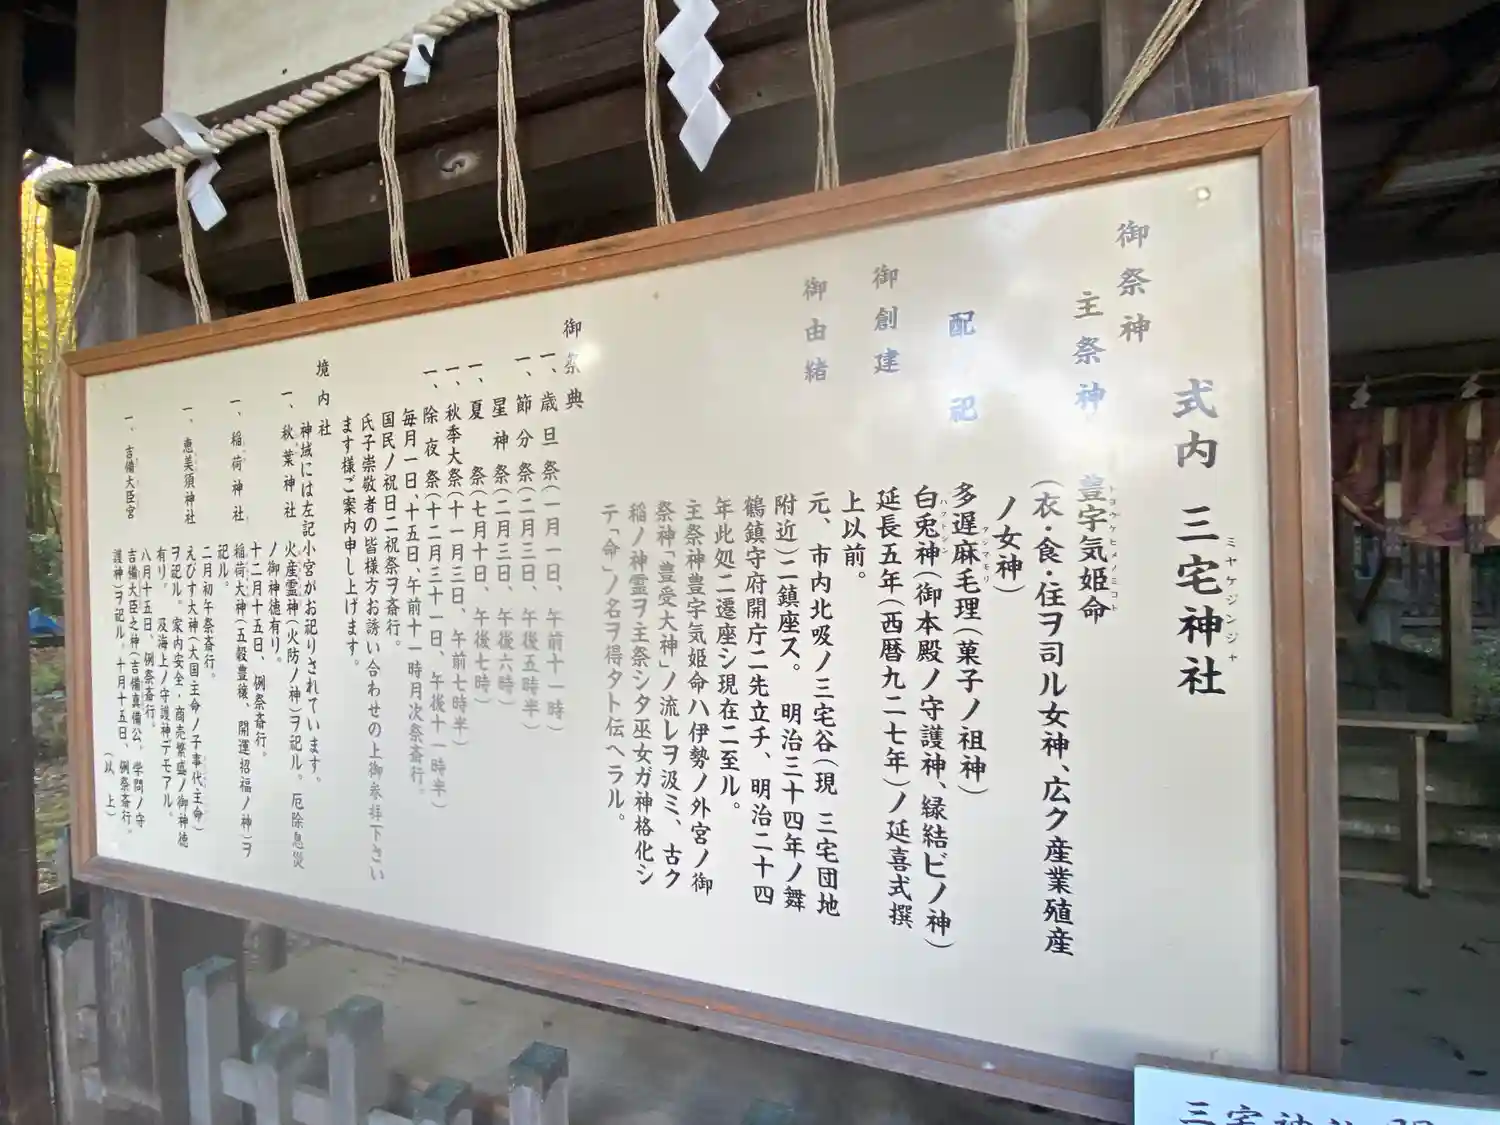 式内 三宅神社
ミヤケジンジャ
御祭神
主祭神 豊宇気姫命
トヨウケヒメノミコト
(衣・食・住ヲ司ル女神、広ク産業殖産
ノ女神)
配祀 多遅麻毛理(菓子ノ祖神)
タジマモリ
白兎神(御本殿ノ守護神、縁結ビノ神)
ハクトシン
御創建 延長五年(西暦九二七年)ノ延喜式撰
上以前。
御由緒 元、市内北吸ノ三宅谷(現 三宅団地
附近)ニ鎮座ス。明治三十四年ノ舞
鶴鎮守府開庁ニ先立チ、明治二十四
年此処ニ遷座シ現在ニ至ル。
主祭神豊宇気姫命ハ伊勢ノ外宮ノ御
祭神「豊受大神」ノ流レヲ汲ミ、古ク
稲ノ神霊ヲ主祭シタ巫女ガ神格化シ
テ「命」ノ名ヲ得タト伝ヘラル。
御祭典
一、歳旦祭(一月一日、午前十一時)
一、節分祭(二月三日、午後五時半)
星神祭(二月三日、午後六時)
一、夏祭(七月十日、午後七時)
一、秋季大祭(十一月三日、午前七時半)
一、除夜祭(十二月三十一日、午後十一時半)
毎月一日、十五日、午前十一時月次祭斎行。
国民ノ祝日ニ祝祭ヲ斎行。
氏子崇敬者の皆様方お誘い合わせの上御参拝下さい
ます様ご案内申し上げます。
境内社
神域には左記小宮がお祀りされています。
一、秋葉神社 火産霊神(火防ノ神)ヲ祀ル。厄除息災
ノ御神徳有リ。
十二月十五日、例祭斎行。
一、稲荷神社 稲荷大神(五穀豊穣、開運招福ノ神)ヲ
祀ル。
二月初午祭斎行。
一、恵美須神社 えびす大神(大国主命ノ子事代主命)
ヲ祀ル。家内安全・商売繁盛ノ御神徳
有リ。及海上ノ守護神デモアル。
八月十五日、例祭斎行。
一、吉備大臣宮 吉備大臣之神(吉備真備公、学問ノ守
護神)ヲ祀ル。十月十五日、例祭斎行。
(以 上)
三宅神社